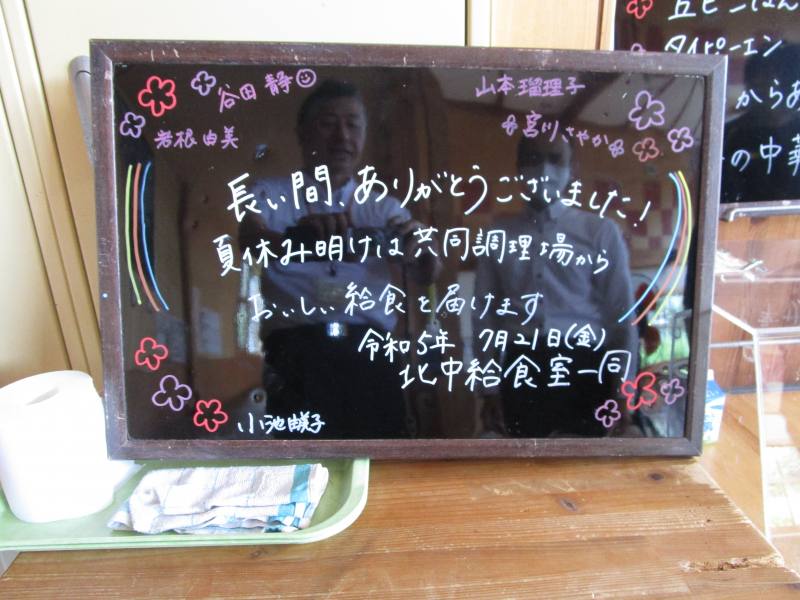 谷田 静
山本瑠理子
岩根由美
宮川さやか
長い間、ありがとうございました!
夏休み明けは共同調理場から
おいしい給食を届けます
令和5年 7月21日(金)
北中給食室一同
小池由美子
タイピーエン
からあ
の中華